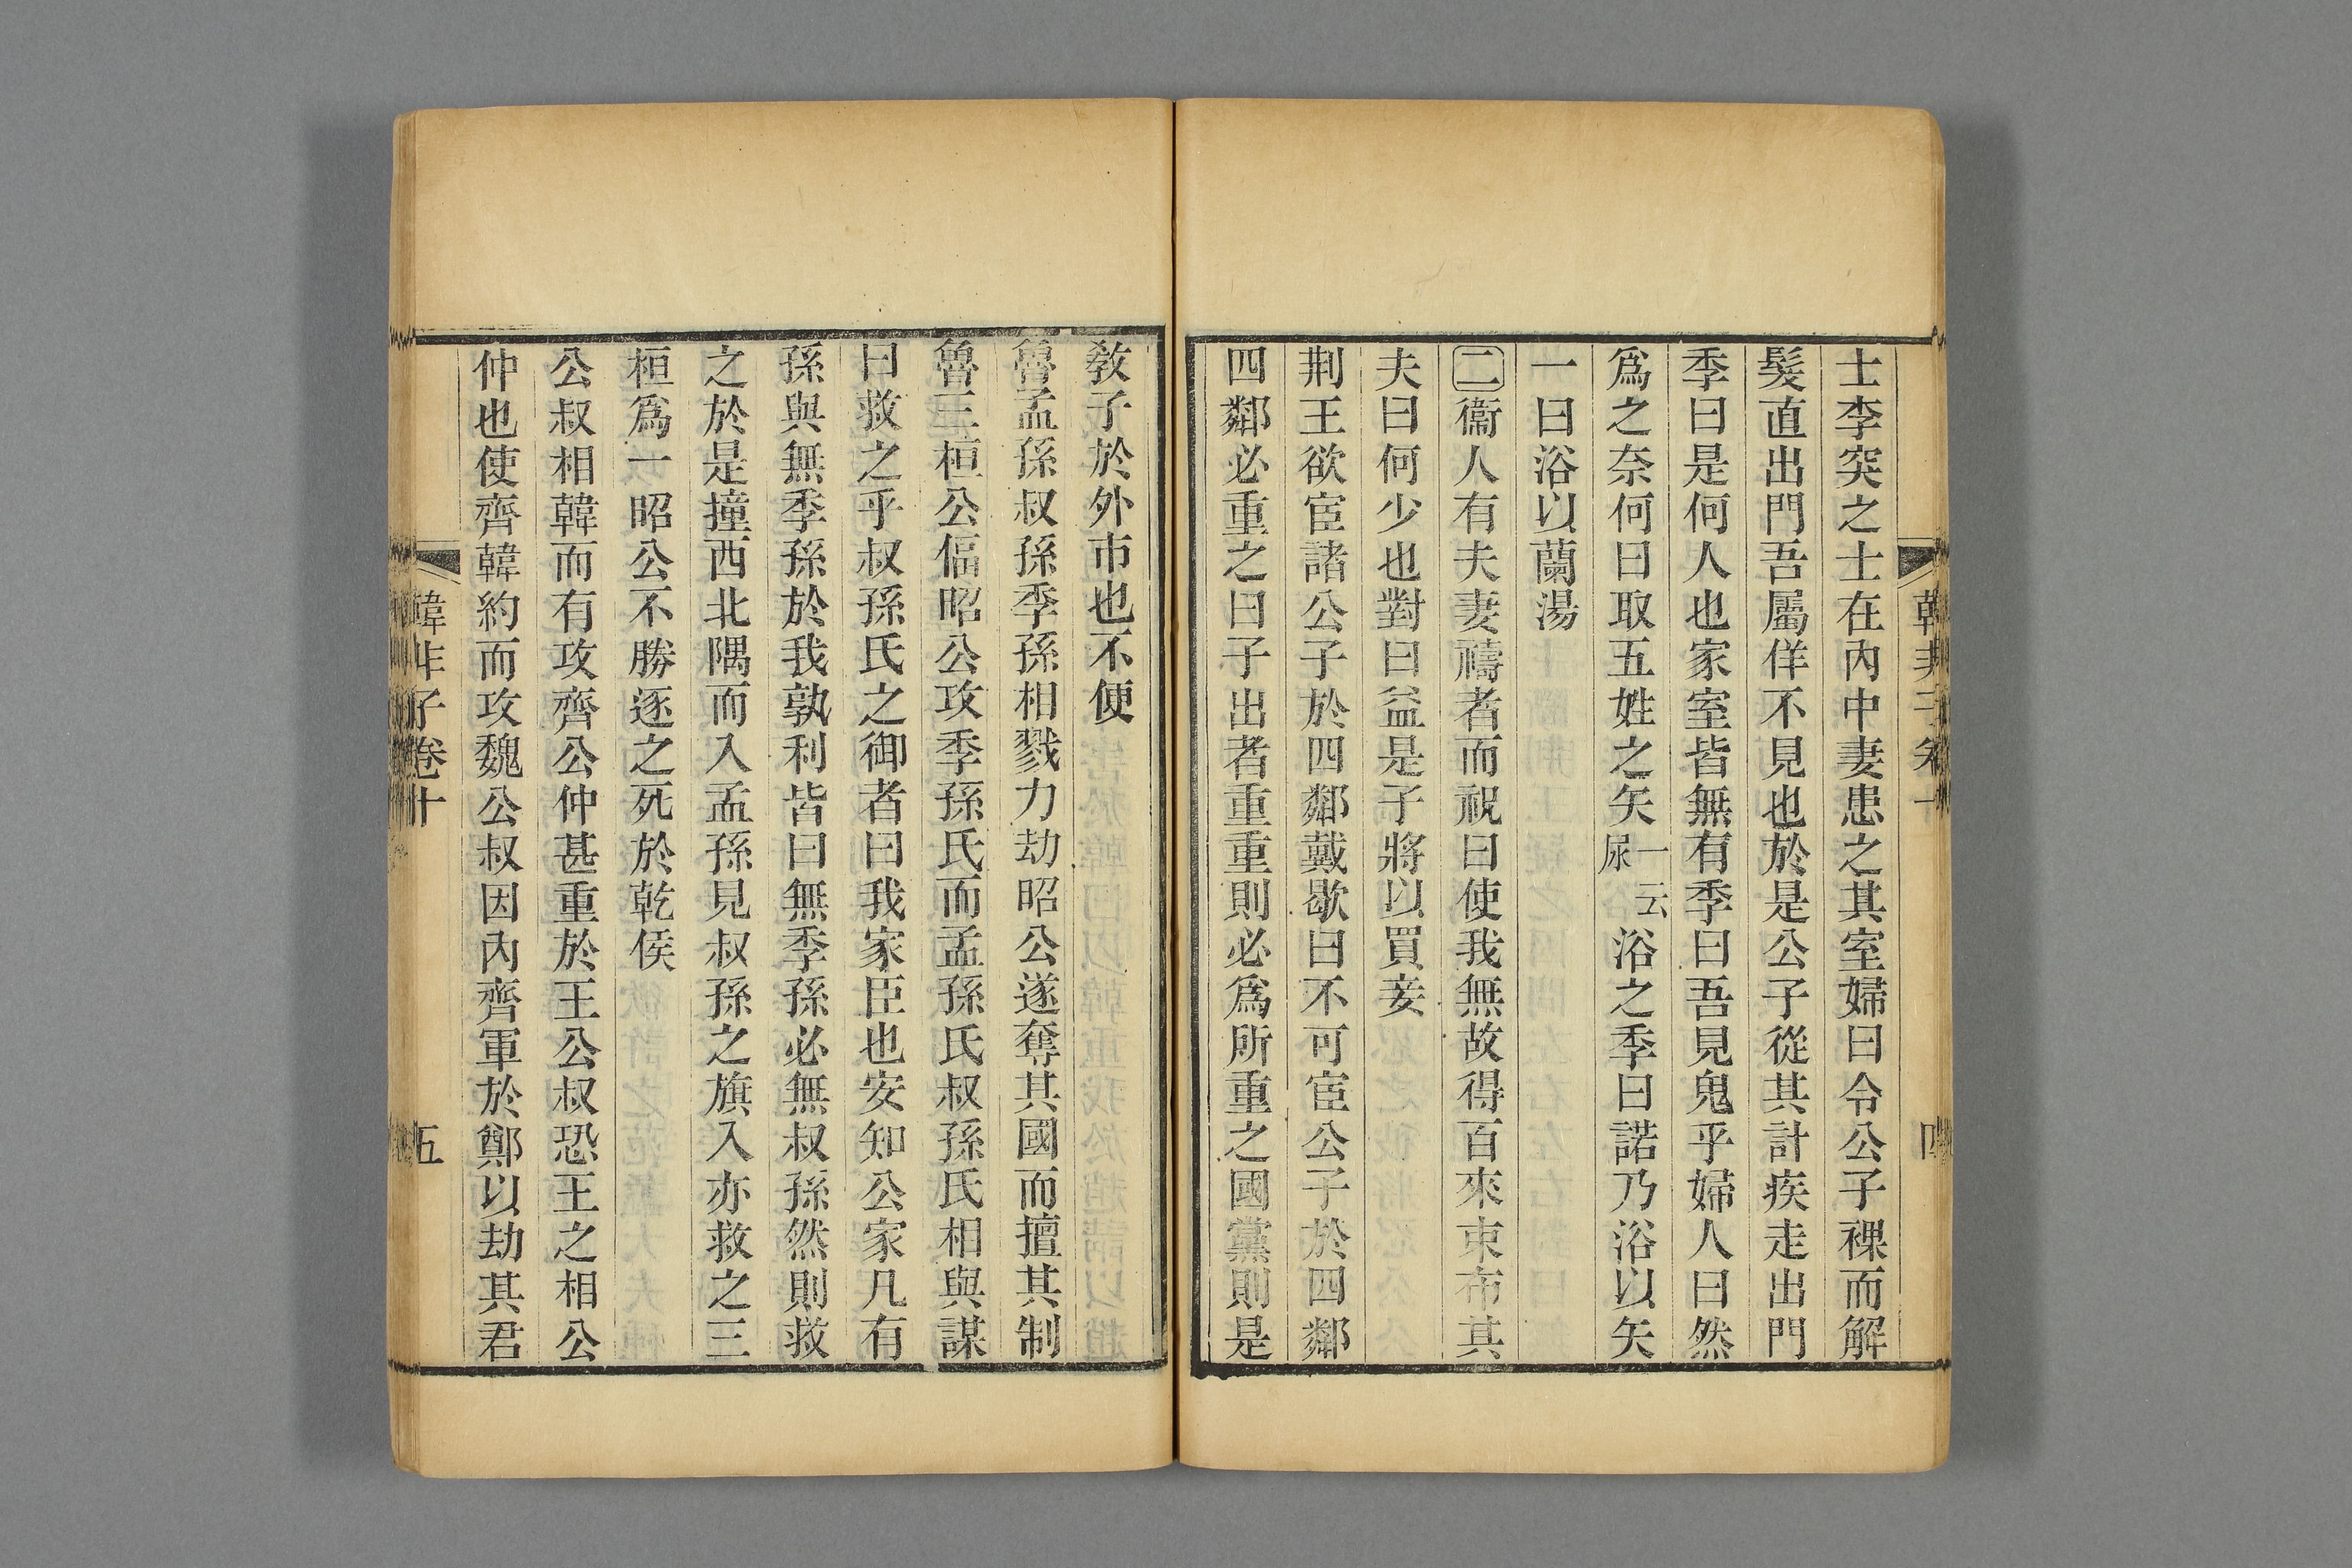 韓非子卷十
四
士李突之士在內中妻患之其室婦曰令公子裸而解
髮直出門吾屬佯不見也於是公子從其計疾走出門
季曰是何人也家室皆無有季曰吾見鬼乎婦人曰然
爲之奈何曰取五姓之矢一云尿浴之季曰諾乃浴以矢
一曰浴以蘭湯
二衞人有夫妻禱者而祝曰使我無故得百來束布其
夫曰何少也對曰益是子將以買妾
荆王欲宦諸公子於四鄰戴歇曰不可宦公子於四鄰
四鄰必重之曰子出者重重則必爲所重之國黨則是
敎子於外市也不便
魯孟孫叔孫季孫相戮力劫昭公遂奪其國而擅其制
魯三桓公偪昭公攻季孫氏而孟孫氏叔孫氏相與謀
曰救之乎叔孫氏之御者曰我家臣也安知公家凡有
孫與無季孫於我孰利皆曰無季孫必無叔孫然則救
之於是撞西北隅而入孟孫見叔孫之旗入亦救之三
桓爲一昭公不勝逐之死於乾侯
公叔相韓而有攻齊公仲甚重於王公叔恐王之相公
仲也使齊韓約而攻魏公叔因內齊軍於鄭以劫其君
韓非子卷十
五